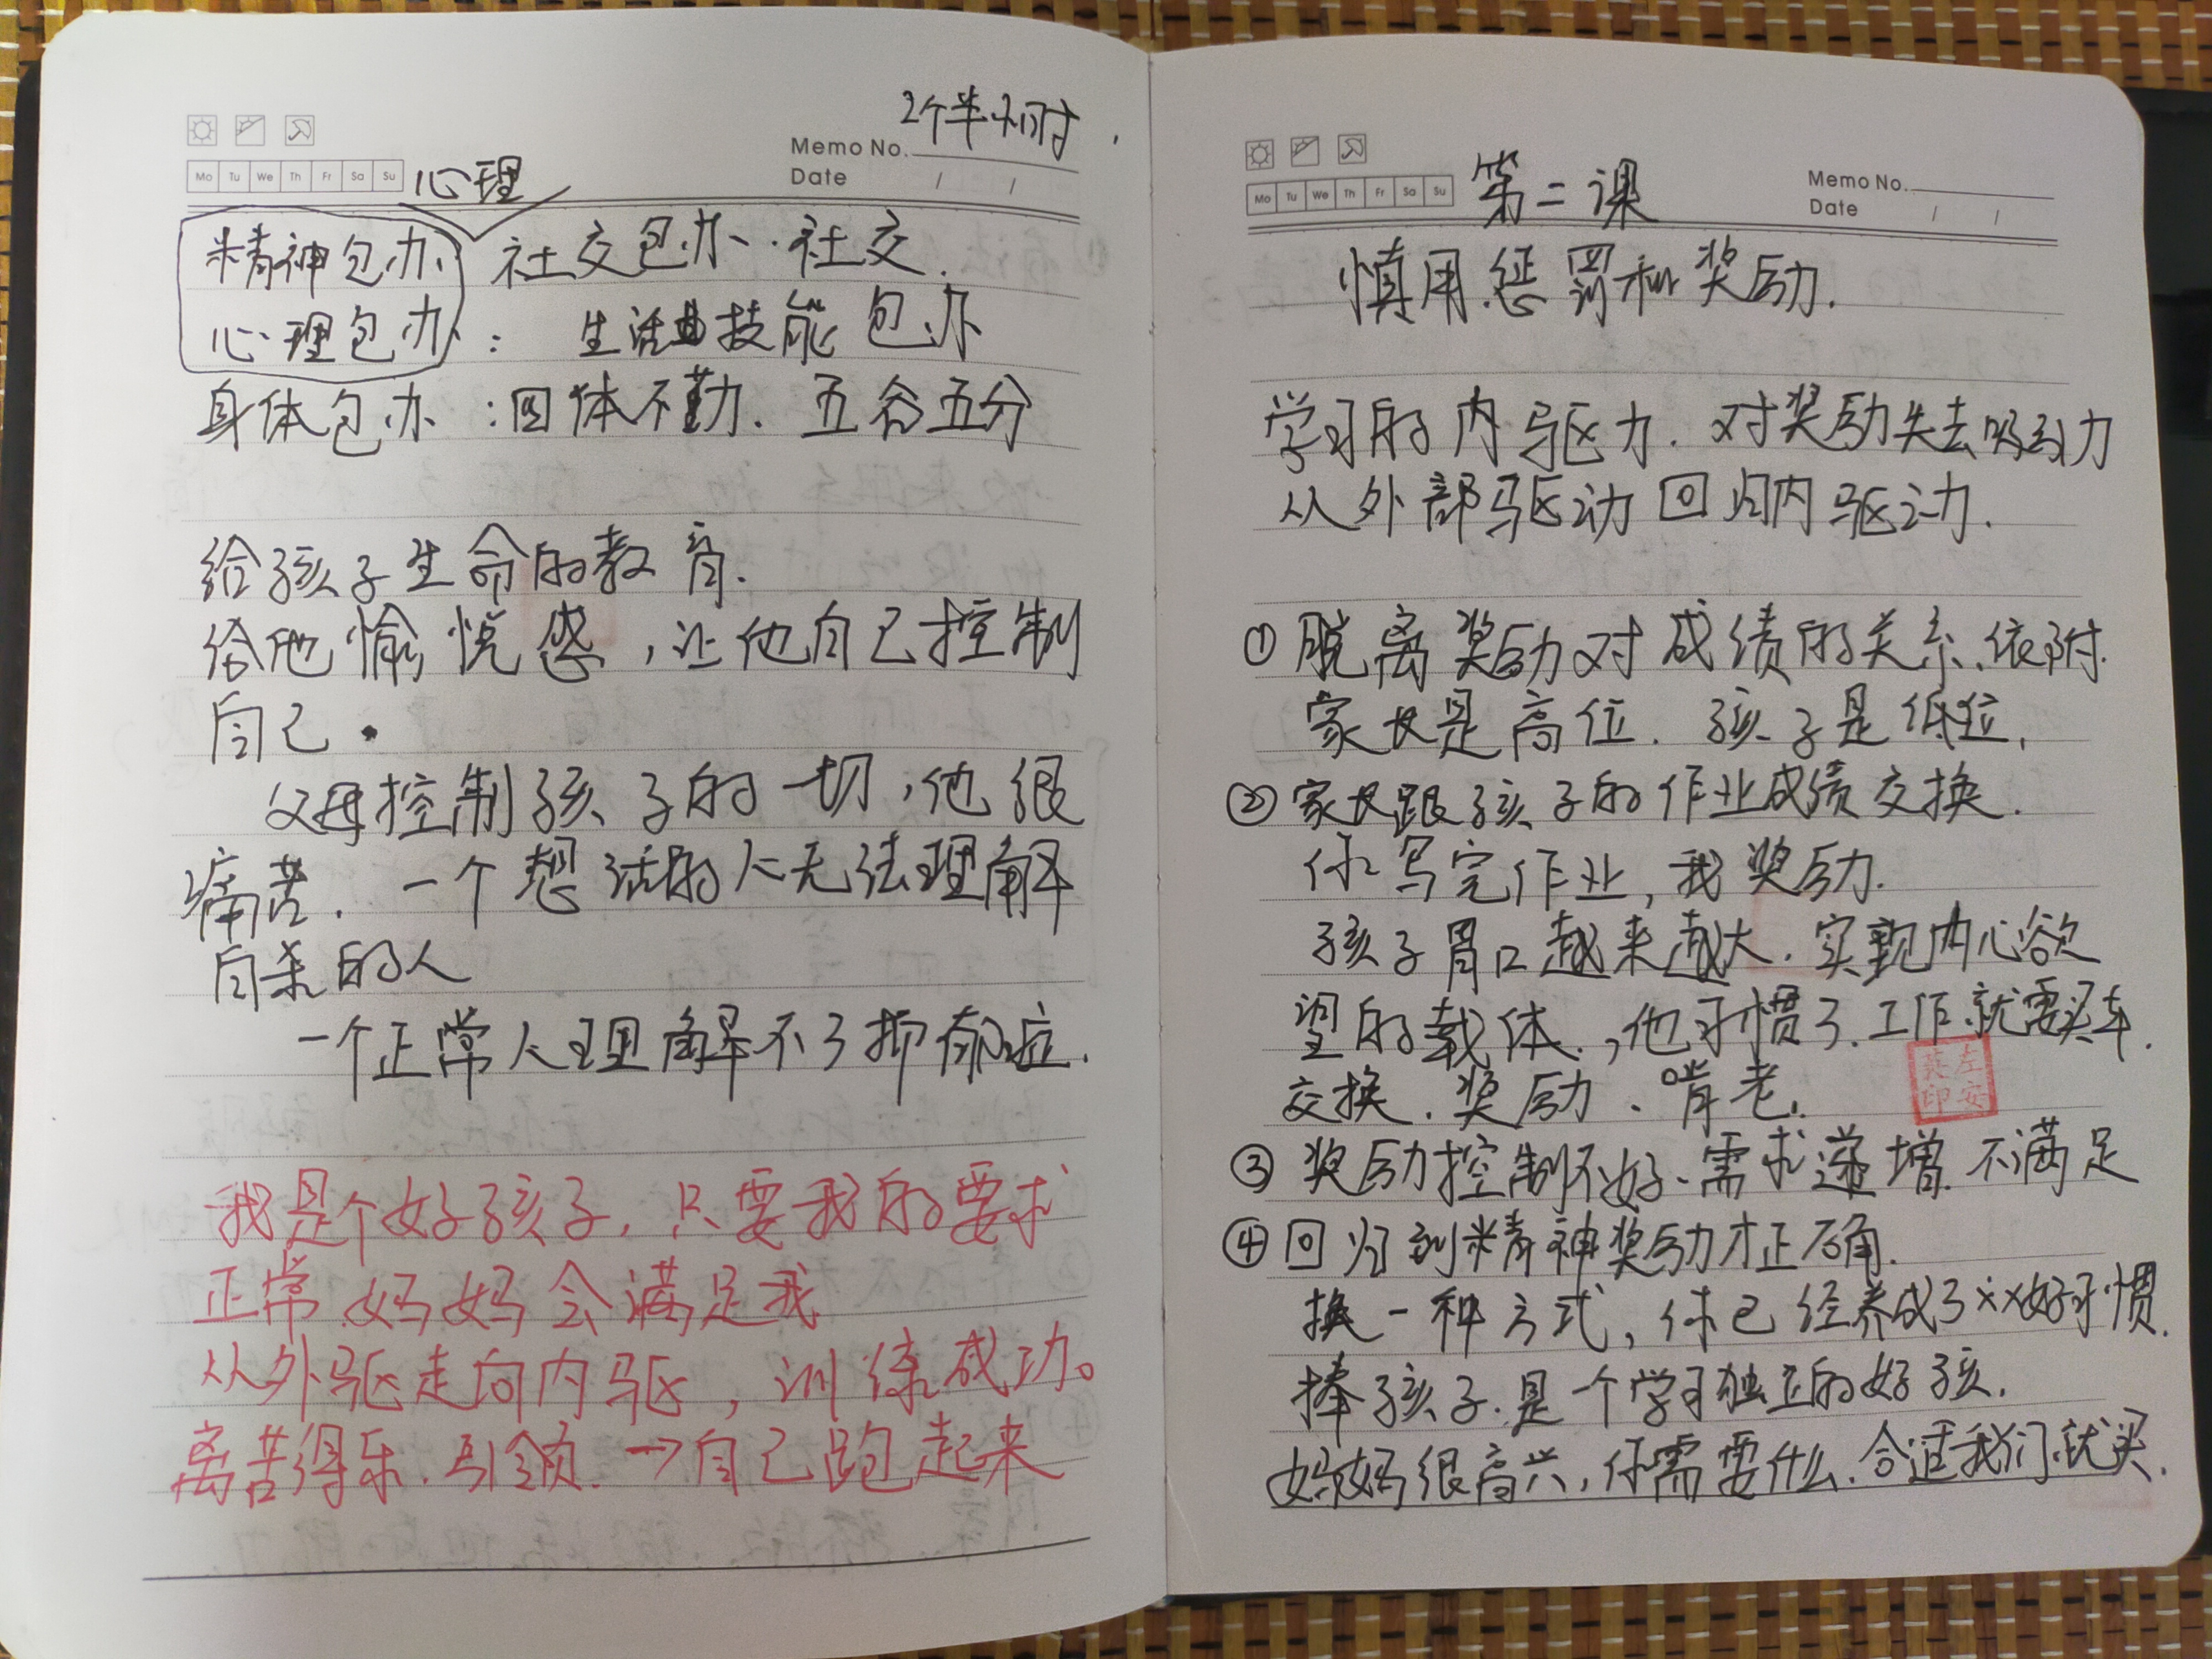 2个半小时
Memo No.
Date / /
Mo Tu We Th Fr Sa Su 心理
精神包办 社交包办、社交.
心理包办: 生活技能包办
身体包办:四体不勤.五谷五分
给孩子生命的教育.
给他愉悦感,让他自己控制
自己.
父母控制孩子的一切,他很
痛苦.一个想活的人无法理解
自杀的人
一个正常人理解不了抑郁症.
我是个好孩子,只要我的要求
正常.妈妈会满足我
从外驱走向内驱,训练成功。
离苦得乐.引领.→自己跑起来
Memo No.
Date / /
Mo Tu We Th Fr Sa Su 第二课
慎用惩罚和奖励.
学习的内驱力.对奖励失去吸引力
从外部驱动回归内驱动.
①脱离奖励对成绩的关系.依附.
家长是高位.孩子是低位.
②家长跟孩子的作业成绩交换.
你写完作业,我奖励.
孩子胃口越来越大.实现内心欲
望的载体.,他习惯了.工作就需买车.
交换.奖励、啃老.
左安
英印
③奖励控制不好、需求递增.不满足
④回归到精神奖励才正确.
换一种方式,你已经养成了××好习惯.
捧孩子.是一个学习独立的好孩.
妈妈很高兴,你需要什么.合适我们就买.